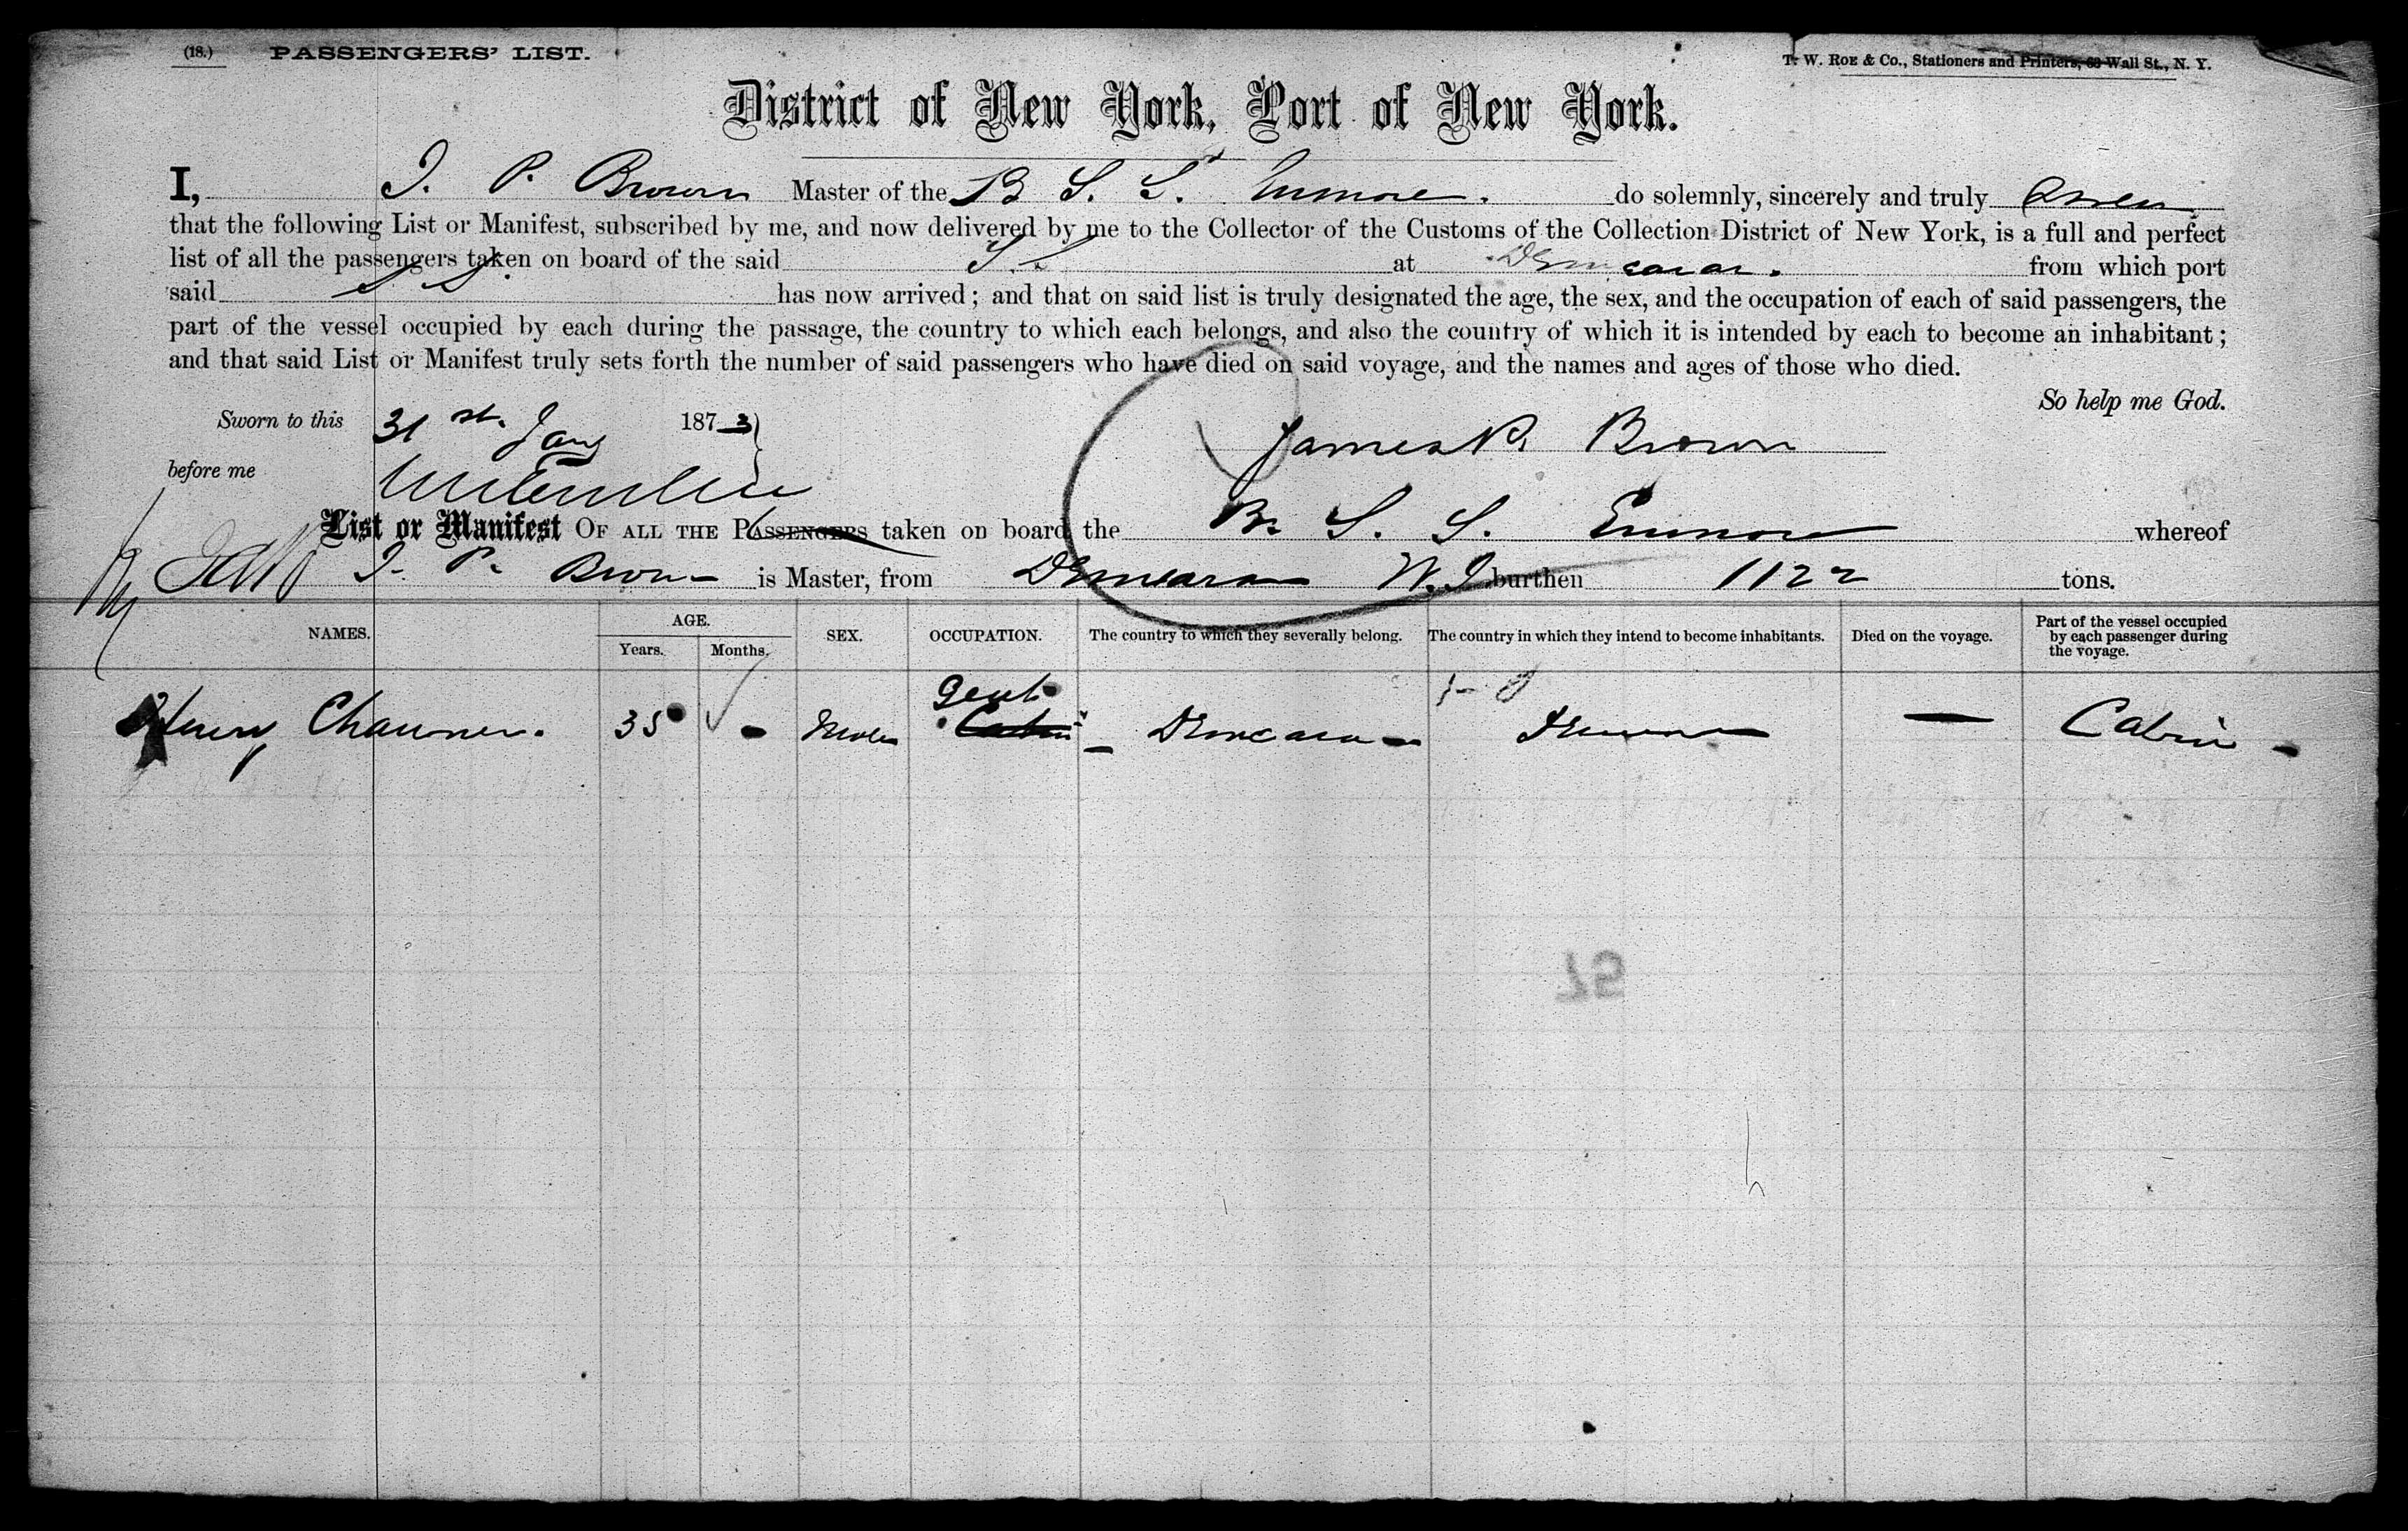 (18.) PASSENGERS' LIST.
T. W. ROE & CO., Stationers and Printers, 68 Wall St., N. Y.
District of New York, Port of New York.
I, J. P. Brown Master of the B S. S. Enmore. do solemnly, sincerely and truly
that the following List or Manifest, subscribed by me, and now delivered by me to the Collector of the Customs of the Collection District of New York, is a full and perfect
list of all the passengers taken on board of the said S. S at Demerara. from which port
said S S. has now arrived; and that on said list is truly designated the age, the sex, and the occupation of each of said passengers, the
part of the vessel occupied by each during the passage, the country to which each belongs, and also the country of which it is intended by each to become an inhabitant;
and that said List or Manifest truly sets forth the number of said passengers who have died on said voyage, and the names and ages of those who died.
So help me God.
Sworn to this 31st. Jany 1873
James P. Brown
before me
List or Manifest OF ALL THE PASSENGERS taken on board the Br S. S. Enmore whereof
J. P. Brown is Master, from Demerara W. I burthen 1122 tons.
NAMES. AGE. Years. Months. SEX. OCCUPATION. The country to which they severally belong. The country in which they intend to become inhabitants. Died on the voyage. Part of the vessel occupied by each passenger during the voyage.
Gent
Henry Male Cabin Demerara Demerara — Cabin